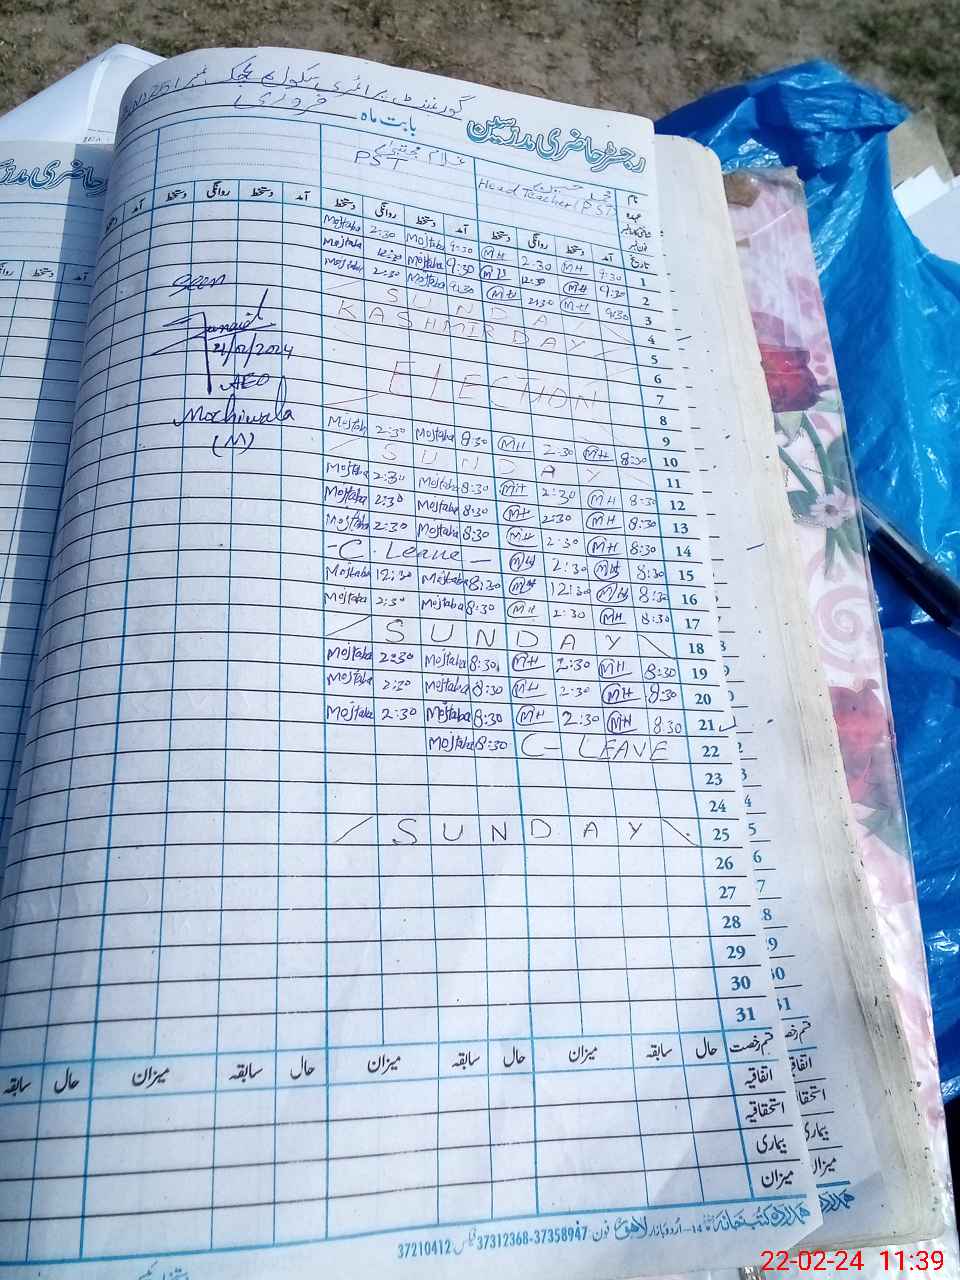 گورنمنٹ پرائمری سکول
رجسٹر حاضری مدرسین بابت ماہ فروری
نام
Head Teacher (PST)
PST
تاریخ آمد دستخط روانگی دستخط آمد دستخط روانگی دستخط آمد دستخط روانگی دستخط
1 9:30 MH 2:30 MH 9:30 Mojtaba 2:30 Mojtaba
2 9:30 MH 12:30 MH 9:30 Mojtaba 12:30 Mojtaba
3 9:30 MH 2:30 MH 9:30 Mojtaba 2:30 Mojtaba
4 SUNDAY
5 KASHMIR DAY
6
7 ELECTION
8
9
10 8:30 MH 2:30 MH 8:30 Mojtaba 2:30 Mojtaba
11 SUNDAY
12 8:30 MH 2:30 MH 8:30 Mojtaba 2:30 Mojtaba
13 8:30 MH 2:30 MH 8:30 Mojtaba 2:30 Mojtaba
14 8:30 MH 2:30 MH 8:30 Mojtaba 2:30 Mojtaba
15 8:30 MH 2:30 MH - C. Leave -
16 8:30 MH 12:30 MH 8:30 Mojtaba 12:30 Mojtaba
17 8:30 MH 2:30 MH 8:30 Mojtaba 2:30 Mojtaba
18 SUNDAY
19 8:30 MH 2:30 MH 8:30 Mojtaba 2:30 Mojtaba
20 8:30 MH 2:30 MH 8:30 Mojtaba 2:30 Mojtaba
21 8:30 MH 2:30 MH 8:30 Mojtaba 2:30 Mojtaba
22 C- LEAVE 8:30 Mojtaba
23
24
25 SUNDAY
26
27
28
29
30
31
Seen
Junaid
21/02/2024
AEO
Mochiwala
(M)
قسم رخصت حال سابقہ میزان حال سابقہ میزان حال سابقہ میزان حال سابقہ
اتفاقیہ
استحقاقیہ
بیماری
میزان
ہمدرد کتب خانہ 14-اردو بازار لاہور فون: 37312368-37358947 فیکس 37210412
22-02-24 11:39